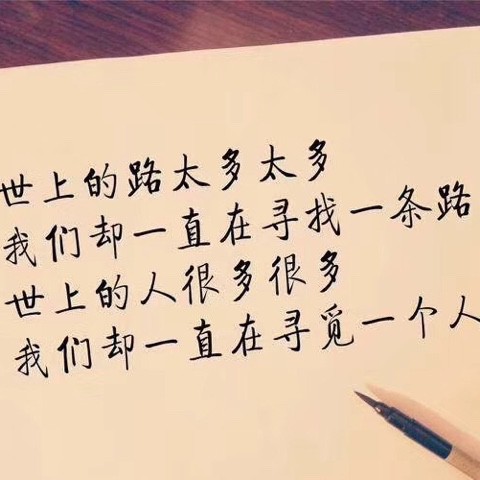 世上的路太多太多
我们却一直在寻找一条路
世上的人很多很多
我们却一直在寻觅一个人